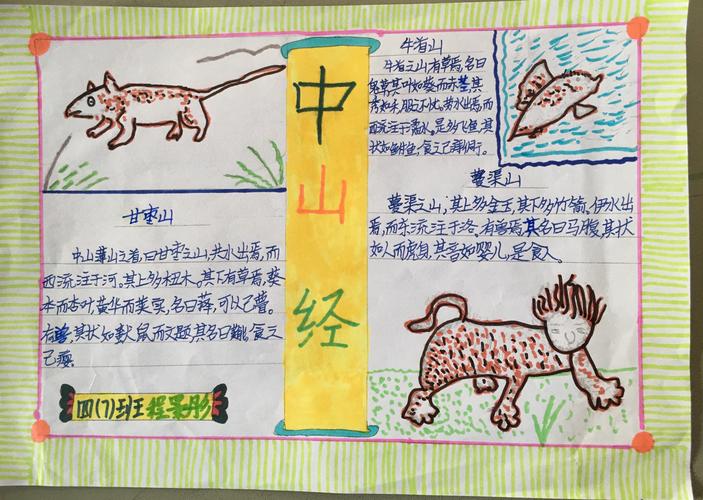 中山经
甘枣山
中山薄山之首,曰甘枣之山,共水出焉,而
西流注于河。其上多杻木。其下有草焉,葵
本而杏叶,黄华而荚实,名曰箨,可以已瞢。
有兽,其状如鼠而文题,其名曰,食之
已瘿
四(7)班程果彤
牛首山
牛首之山有草焉,名曰
鬼草,其叶如葵而赤茎,其
秀如禾,服之不忧。劳水出焉,而
西流注于潏水。是多飞鱼,其
状如鲋鱼,食之已痔衕。
蔓渠山
蔓渠之山,其上多金玉,其下多竹箭。伊水出
焉,而东流注于洛。有兽焉,其名曰马腹,其状
如人面虎身,其音如婴儿,是食人。